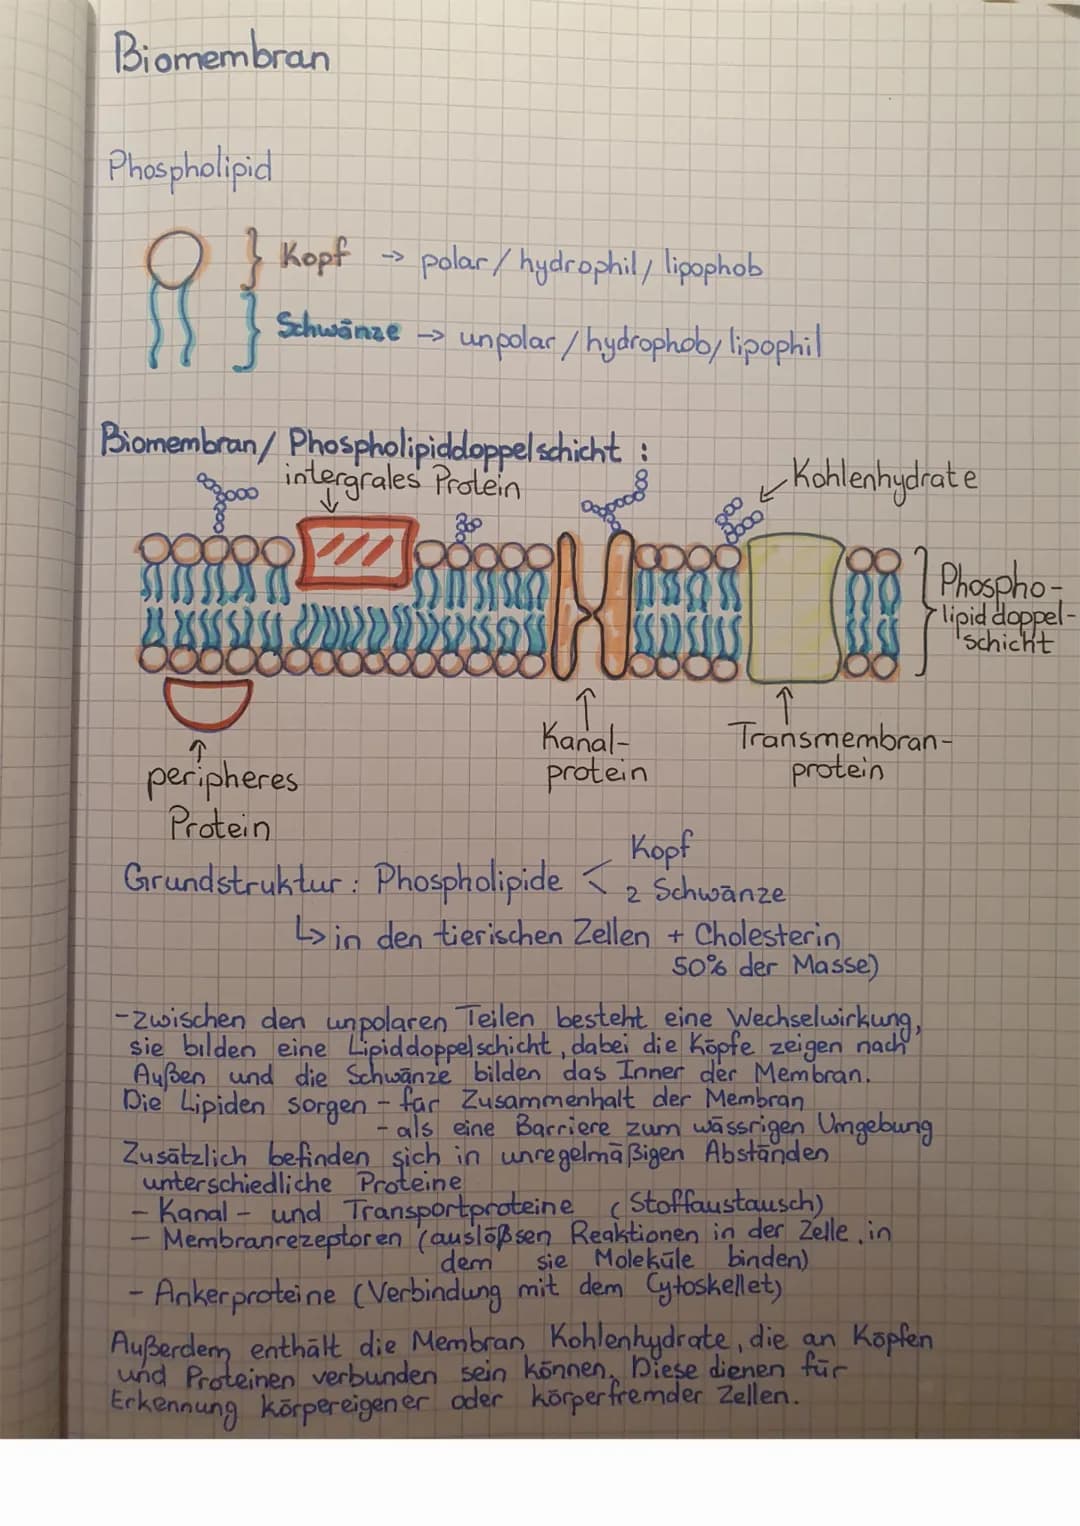 Biomembran
Phospholipid
Kopf → polar / hydrophil / lipophob
Schwänze → unpolar / hydrophob / lipophil
Biomembran / Phospholipiddoppelschicht :
intergrales Protein
Kohlenhydrate
Phospho-
lipiddoppel-
schicht
peripheres
Protein
Kanal-
protein
Transmembran-
protein
Grundstruktur : Phospholipide < Kopf
2 Schwänze
↳ in den tierischen Zellen + Cholesterin
50% der Masse)
- zwischen den unpolaren Teilen besteht eine Wechselwirkung,
sie bilden eine Lipiddoppelschicht, dabei die Köpfe zeigen nach
Außen und die Schwänze bilden das Inner der Membran.
Die Lipiden sorgen - für Zusammenhalt der Membran
- als eine Barriere zum wässrigen Umgebung
Zusätzlich befinden sich in unregelmäßigen Abständen
unterschiedliche Proteine
- Kanal- und Transportproteine (Stoffaustausch)
- Membranrezeptoren (auslößsen Reaktionen in der Zelle, in
dem sie Moleküle binden)
- Ankerproteine (Verbindung mit dem Cytoskellet)
Außerdem enthält die Membran Kohlenhydrate, die an Köpfen
und Proteinen verbunden sein können. Diese dienen für
Erkennung körpereigener oder körperfremder Zellen.